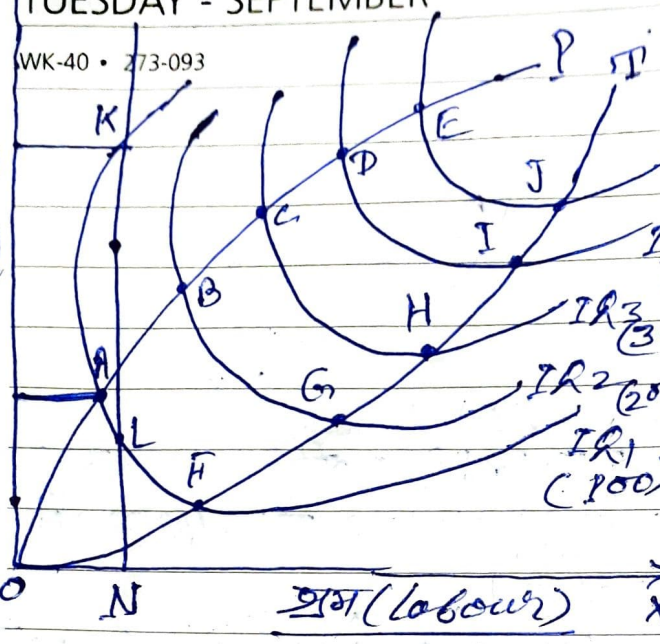 TUESDAY - SEPTEMBER
WK-40 • 273-093
P
T
K
E
D
J
C
I
I
B
H
IR3
(3
A
G
IR2
(20
L
IR1
(100
F
O
N
श्रम (Labour)
X